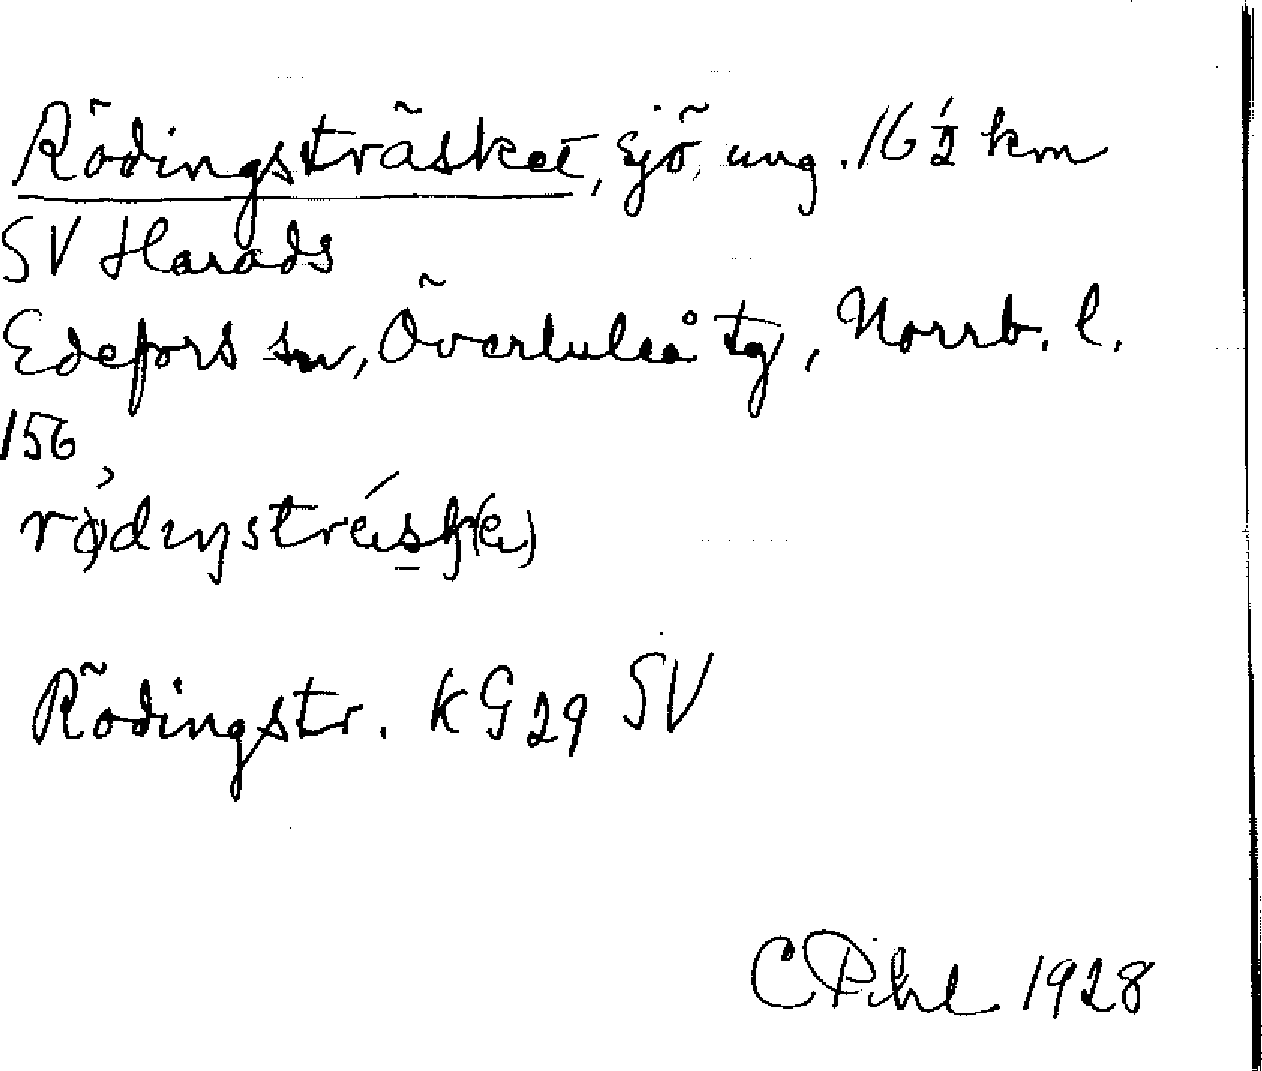 Rödingsträsket, sjö, ung. 16 1/2 km
SV Harads
Edefors sn, Överluleå tg, Norrb. l.
156
Rödingstr. KG 29 SV
C Pihl 1928